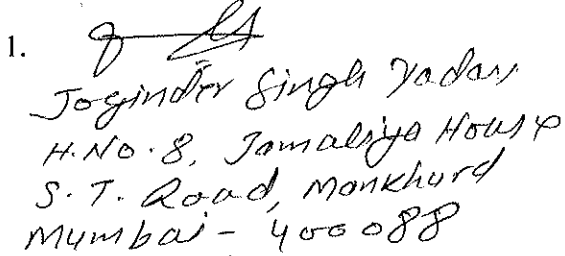 1.
Joginder Singh Yadav
H.No.8, Jamaliya House
S.T. Road, Mankhurd
Mumbai - 400088